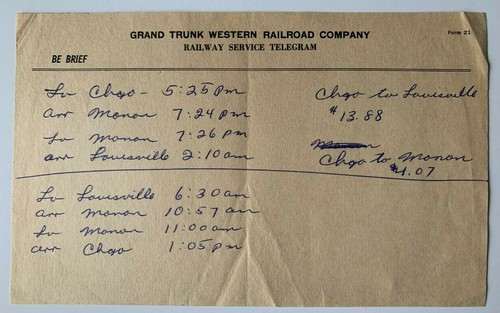 GRAND TRUNK WESTERN RAILROAD COMPANY
Form 21
RAILWAY SERVICE TELEGRAM
BE BRIEF
Lv Chgo - 5:25 pm
arr Monon 7:24 pm
Lv Monon 7:26 pm
arr Louisville 2:10 am
Chgo to Louisville
$13.88
Monon
Chgo to Monon
$4.07
Lv Louisville 6:30 am
arr Monon 10:57 am
Lv Monon 11:00 am
arr Chgo 1:05 pm